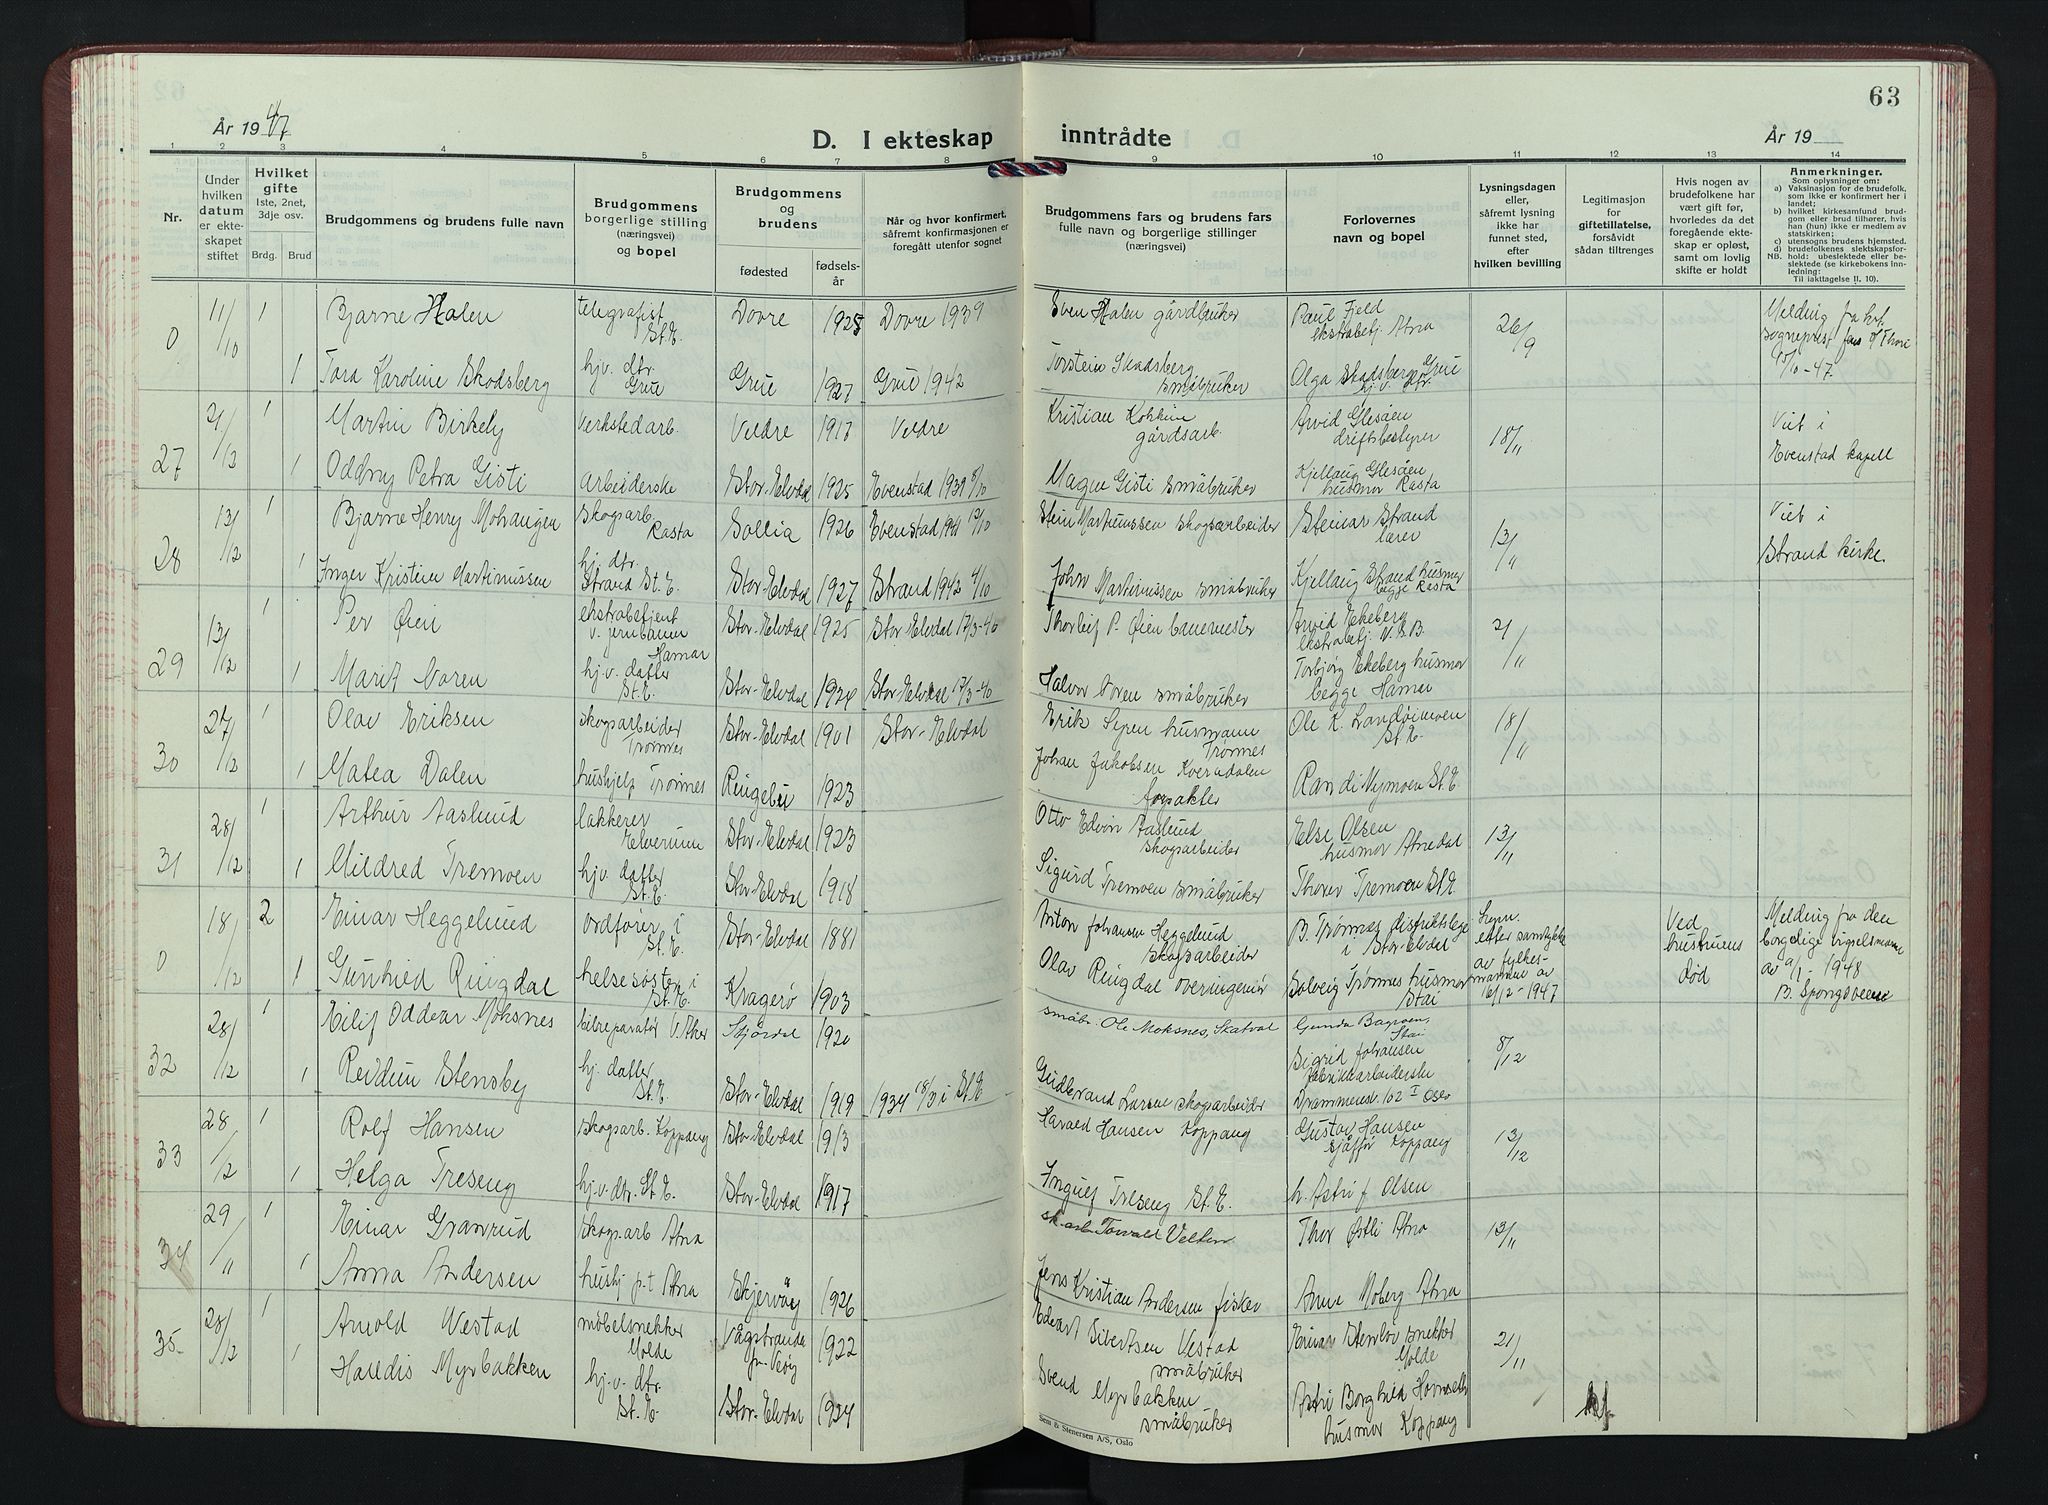 63
År 1947
D. I ekteskap inntrådte
År 19
1 2 3 4 5 6 7 8 9 10 11 12 13 14
Nr.
Under hvilken datum er ekteskapet stiftet
Hvilket gifte 1ste, 2net, 3dje osv.
Brdg. Brud
Brudgommens og brudens fulle navn
Brudgommens borgerlige stilling (næringsvei) og bopel
Brudgommens og brudens
fødested
fødselsår
Når og hvor konfirmert, såfremt konfirmasjonen er foregått utenfor sognet
Brudgommens fars og brudens fars fulle navn og borgerlige stillinger (næringsvei)
Forlovernes navn og bopel
Lysningsdagen eller, såfremt lysning ikke har funnet sted, efter hvilken bevilling
Legitimasjon for giftetillatelse, forsåvidt sådan tiltrenges
Hvis nogen av brudefolkene har vært gift før, hvorledes da det foregående ekteskap er opløst, samt om lovlig skifte er holdt
Anmerkninger.
Som oplysninger om:
a) Vaksinasjon for de brudefolk, som ikke er konfirmert her i landet;
b) hvilket kirkesamfund brudgom eller brud tilhører, hvis han (hun) ikke er medlem av statskirken;
c) utensogns brudens hjemsted.
d) brudefolkenes slektskapsforhold: ubeslektede eller beslektede (se kirkebokens innledning:
NB.
Til iakttagelse II, 10).
0 11/10 1 Bjarne Halen telegrafist St.E. Dovre 1925 Dovre 1939 Sven Halen gårdbruker Paul Fjeld ekstrabetj. Atna 26/9 Melding fra sogneprest 15/10-47.
1 Tora Karoline Skodsberg hjv. dtr. Grue Grue 1927 Grue 1942 Torstein Skadsberg småbruker Olga Skadsberg Grue hj. v. dtr.
27 21/13 1 Martin Birkely verkstedarb. Veldre 1917 Veldre Kristian gårdsarb. Arvid Glesåen driftsbestyrer 18/11 Viet i Evenstad kapell
1 Oddny Petra Gisti arbeiderske Stor-Elvdal 1925 Evenstad 1939 Magne Gisti småbruker Kjellaug Glesåen husmor Rasta
28 13/12 1 Bjarne Henry Mohaugen skogsarb. Rasta Sollia 1926 Evenstad 1941 12/10 Stein Martinussen skogsarbeider Steinar Strand lærer 13/11 Viet i Strand kirke.
1 Inger Kristine Martinussen hj. dtr. Strand St.E. Stor-Elvdal 1927 Strand 1942 4/10 John Martinussen småbruker Kjellaug Strand husmor begge Rasta
29 13/12 1 Per Øien ekstrabetjent v. jernbanen Hamar Stor-Elvdal 1925 Stor-Elvdal 17/3-40 Thorleif P. Øien banemester Arvid Ekeberg ekstrabetj. N.S.B. 21/11
1 Marit Noren hj.v. datter St.E. Stor-Elvdal 1924 Stor-Elvdal 17/3-40 Halvor Noren småbruker Torbjørg Ekeberg husmor begge Hamar
30 27/12 1 Olav Eriksen skogsarbeider Trønnes Stor-Elvdal 1901 Stor-Elvdal Erik husmann Trønnes Ole K. Landsimoen St.E. 18/11
1 Matea Dalen hushjelp Trønnes Ringebu 1923 Johan Jakobsen Kverndalen forpakter Randi Nymoen St.E.
31 28/12 1 Arthur Aaslund lakkerer Elverum Stor-Elvdal 1923 Otto Edvin Aaslund skogsarbeider Else Olsen husmor Atnedal 13/11
1 Mildred Tremoen hjv. datter St.E. Stor-Elvdal 1918 Sigurd Tremoen småbruker Thorer Tremoen St.E.
0 18/12 2 Einar Heggelund ordfører i St.E. Stor-Elvdal 1881 Anton Johansen Heggelund skogsarbeider B. Trønnes distriktslege i Stor-Elvdal etter samtykke av fylkesmannen av 16/12-1947 Ved hustruens død Melding fra den borgelige vigselsmann av 9/1-1948 B. Spongsveen
1 Gunhild Ringdal helsesøster i St.E. Kragerø 1903 Olav Ringdal overingeniør Solveig Trønnes husmor Stai
32 28/12 1 Eilif Oddvar Moksnes bilreparatør V. Aker Stjørdal 1920 småbr. Ole Moksnes, Skatval Gunda Stai 8/12
1 Reidun Stensby hj. datter St.E. Stor-Elvdal 1919 1934 i St.E. Gudbrand Larsen skogsarbeider Sigrid Johansen fabrikkarbeiderske Drammensv. 102 I Oslo
33 28/12 1 Rolf Hansen skogsarb. Koppang Stor-Elvdal 1913 Harald Hansen Koppang Gustav Hansen sjåfør Koppang 13/12
1 Helga Treseng hj.v. dtr. St.E. Stor-Elvdal 1917 Ingulf Treseng St.E. h. Astri J. Olsen
34 29/11 1 Einar Granrud skogsarb Atna sk.arb. Torvald Velten Thor Østli Atna 13/11
1 Anna Andersen hushj p.t Atna Skjervøy 1926 Jens Kristian Andersen fisker Anne Moberg Atna
35 28/12 1 Arnold Vestad møbelsnekker Molde Vågstranda pr. Vesøy 1922 Edvart Sivertsen Vestad småbruker Einar Stenløs snekker Molde 21/11
1 Halldis Myrbakken hj.v. dtr. St.E. Stor-Elvdal 1924 Svend Myrbakken småbruker Astri Borghild husmor Koppang
Sem & Stenersen A/S, Oslo